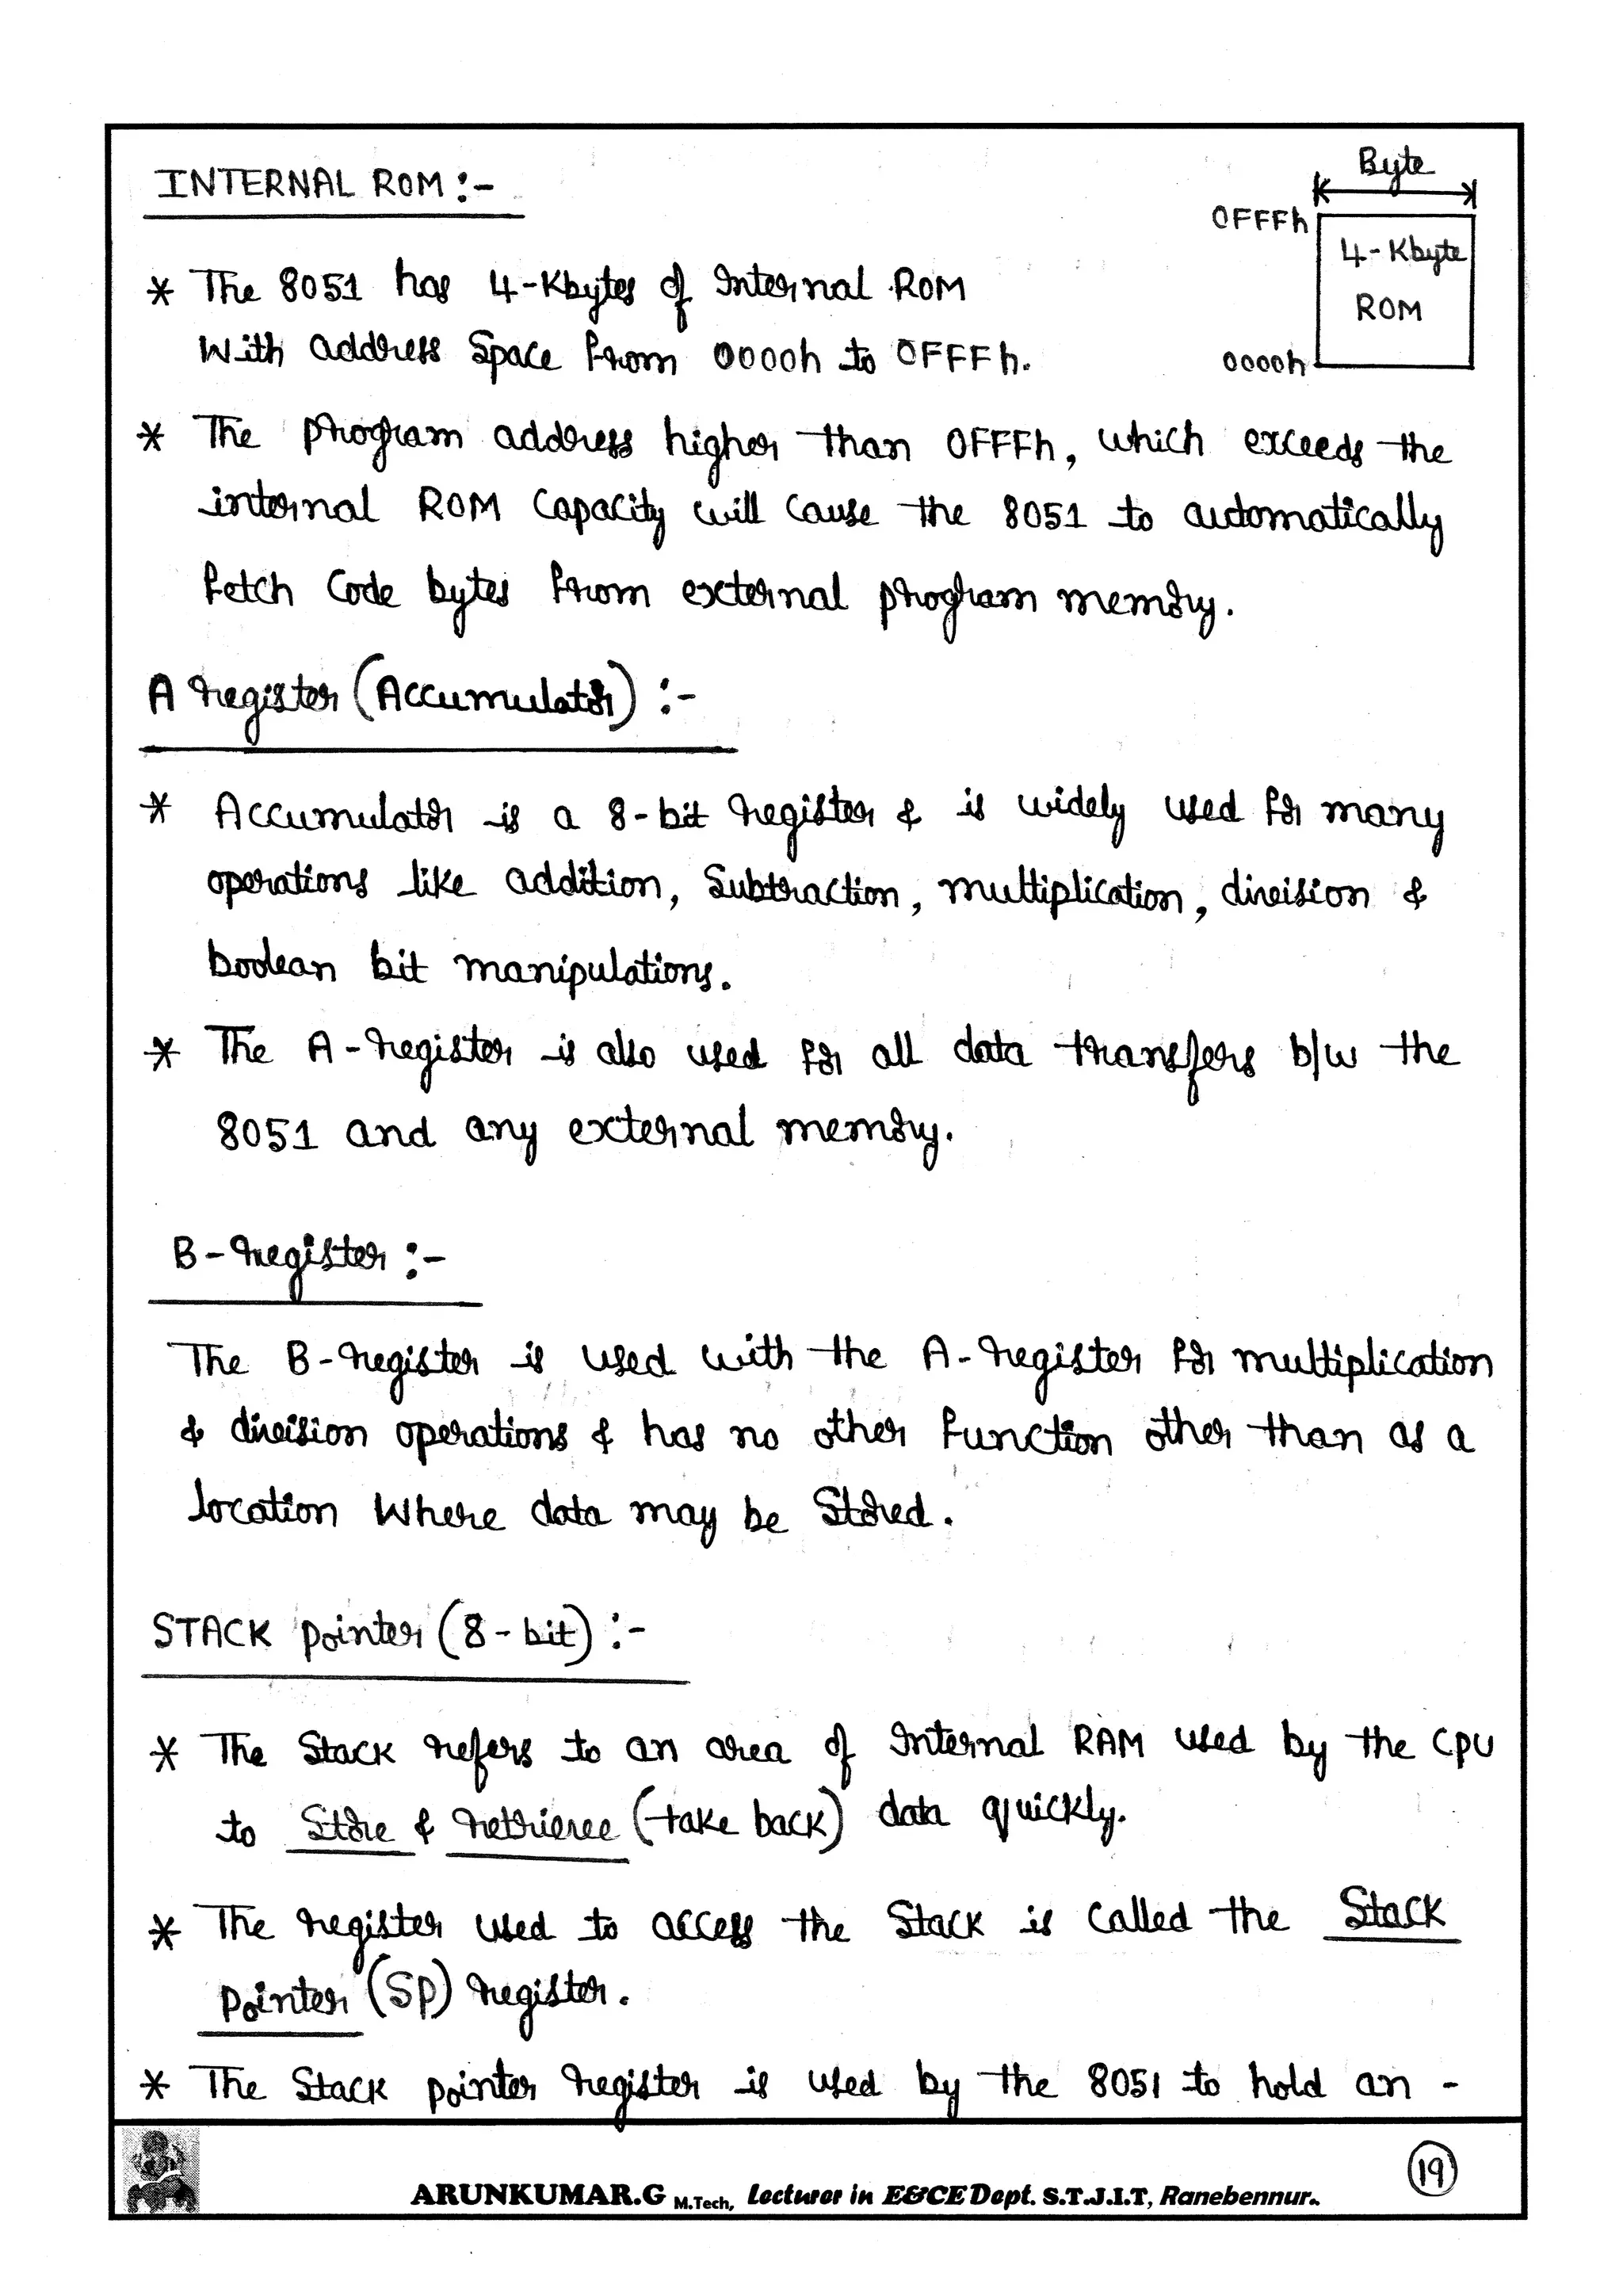 INTERNAL ROM :-
Byte
0FFFh
4-Kbyte
ROM
0000h
* The 8051 has 4-Kbytes of Internal ROM
With address Space from 0000h to 0FFFh.
* The program address higher than 0FFFh, which exceeds the
internal ROM Capacity will cause the 8051 to automatically
fetch Code bytes from external program memory.
A register (Accumulator) :-
* Accumulator is a 8-bit register & is widely used for many
operations like addition, Subtraction, multiplication, division &
boolean bit manipulations.
* The A-register is also used for all data transfers b/w the
8051 and any external memory.
B-register :-
The B-register is used with the A-register for multiplication
& division operations & has no other function other than as a
location Where data may be Stored.
STACK pointer (8-bit) :-
* The Stack refers to an area of Internal RAM used by the CPU
to Store & retrieve (take back) data quickly.
* The register used to access the Stack is called the Stack
Pointer (SP) register.
* The Stack pointer register is used by the 8051 to hold an -
ARUNKUMAR.G M.Tech, Lecturer in E&CE Dept. S.T.J.I.T, Ranebennur..
19